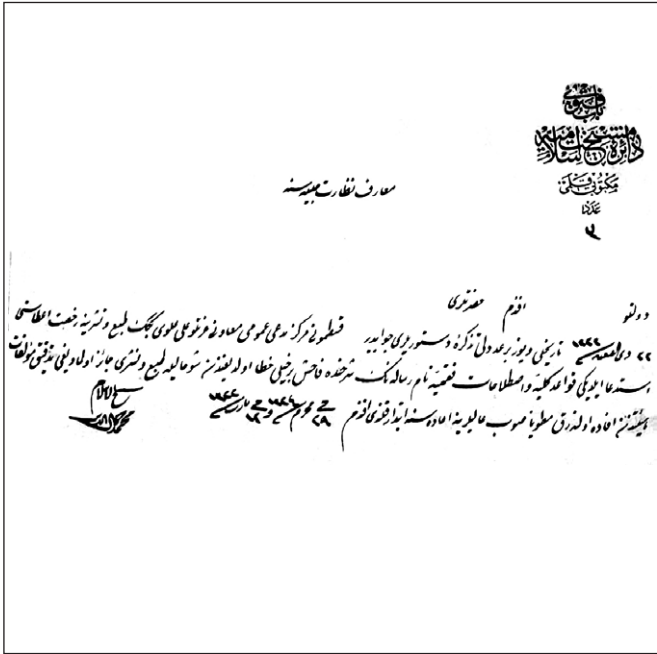 باب فتوى
دائرهٔ مشيخت اسلاميه
مكتوبى قلمى
عدد
معارف نظارت جليله‌سنه
دولتلو افندم حضرتلرى
تاريخلى ويوز بر عددلى تذكرهٔ دستوريلرى جوابيدر قسطمونى مركز مدعى عمومى معاونى عزتلو على علوى بكك طبع ونشرينه رخصت اعطاسنى
استدعا ايلديكى قواعد كليه واصطلاحات فقهيه نام رساله‌نك شرحنده فاحش برخيلى خطا اولديغندن شو حاليله طبع ونشرى جائز اولمديغى تدقيق مؤلفات
افاده اولنه‌رق مطوياً صوب عاليلرينه اعاده‌سنه ابتدار قلندى افندم
شيخ الاسلام